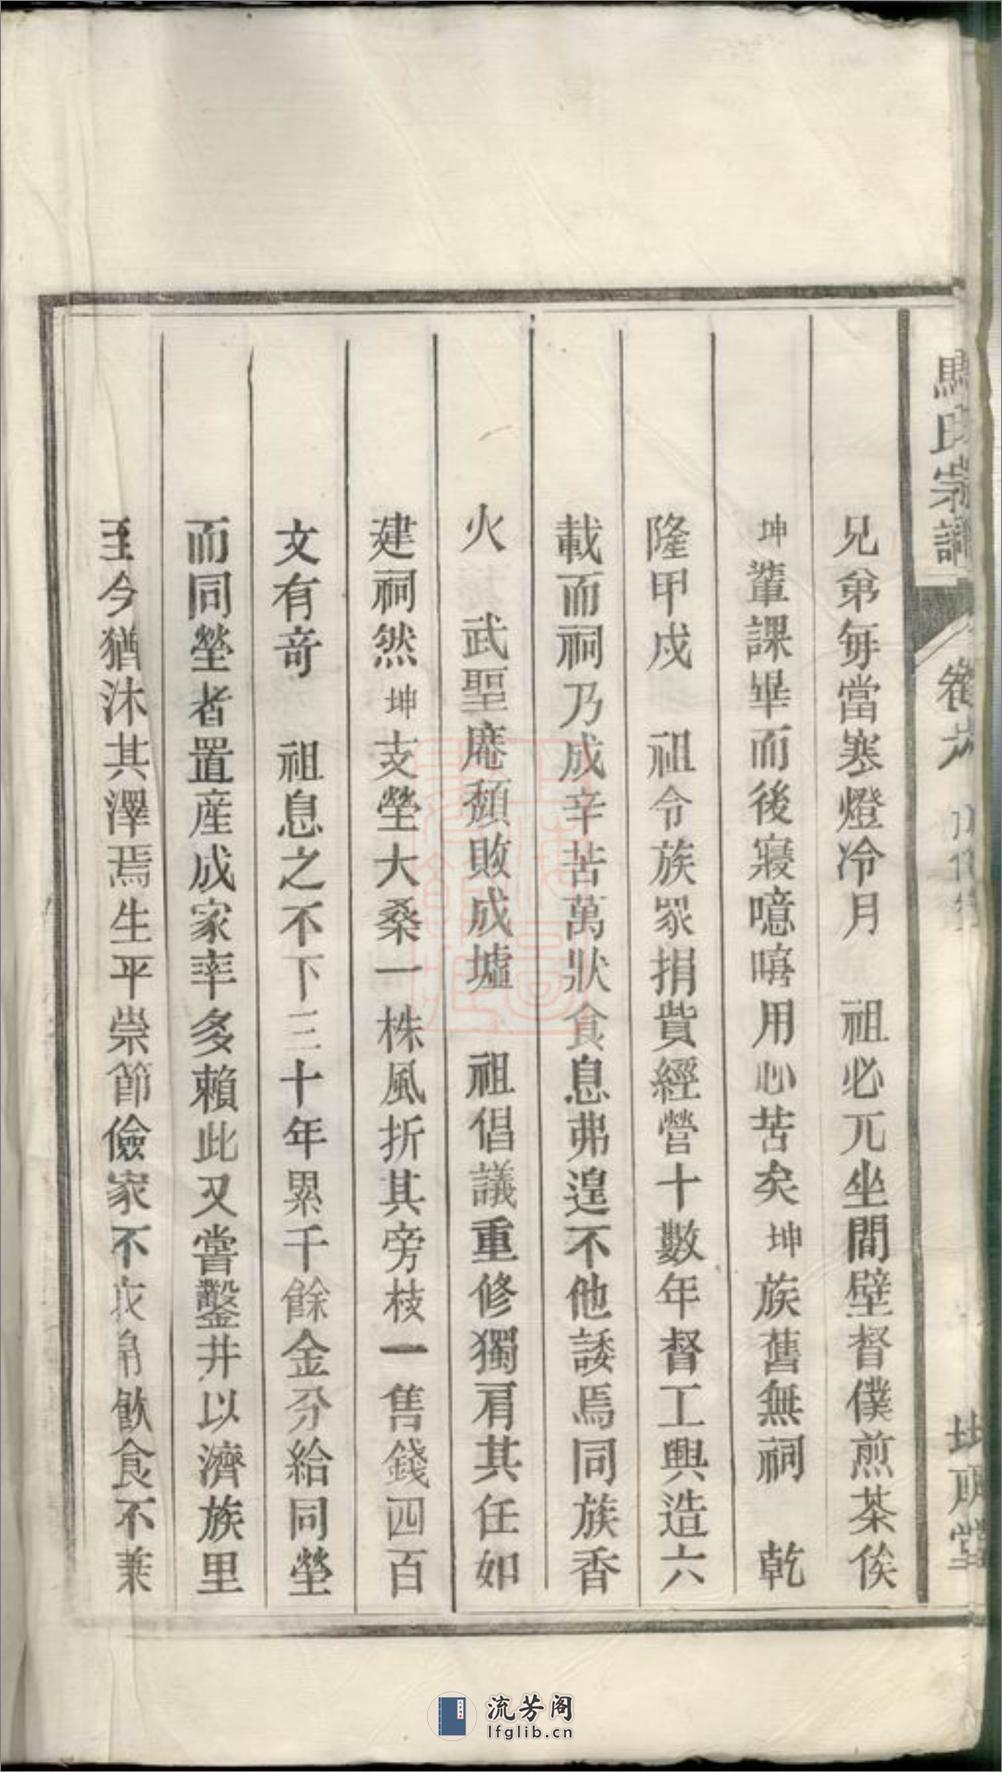 馬氏宗譜 卷六
兄弟每當寒燈冷月 祖必兀坐間壁督僕煎茶俟
坤輩課畢而後寢噫嘻用心苦矣坤族舊無祠 乾
隆甲戍 祖令族眾捐貲經營十數年督工興造六
載而祠乃成辛苦萬狀食息弗遑不他諉焉同族香
火 武聖庵頹敗成墟 祖倡議重修獨肩其任如
建祠然坤支塋大桑一株風折其旁枝一售錢四百
文有奇 祖息之不下三十年累千餘金分給同塋
而同塋者置産成家率多賴此又嘗鑿井以濟族里
至今猶沐其澤焉生平崇節儉家不衣帛飲食不兼
流芳阁
lfglib.cn